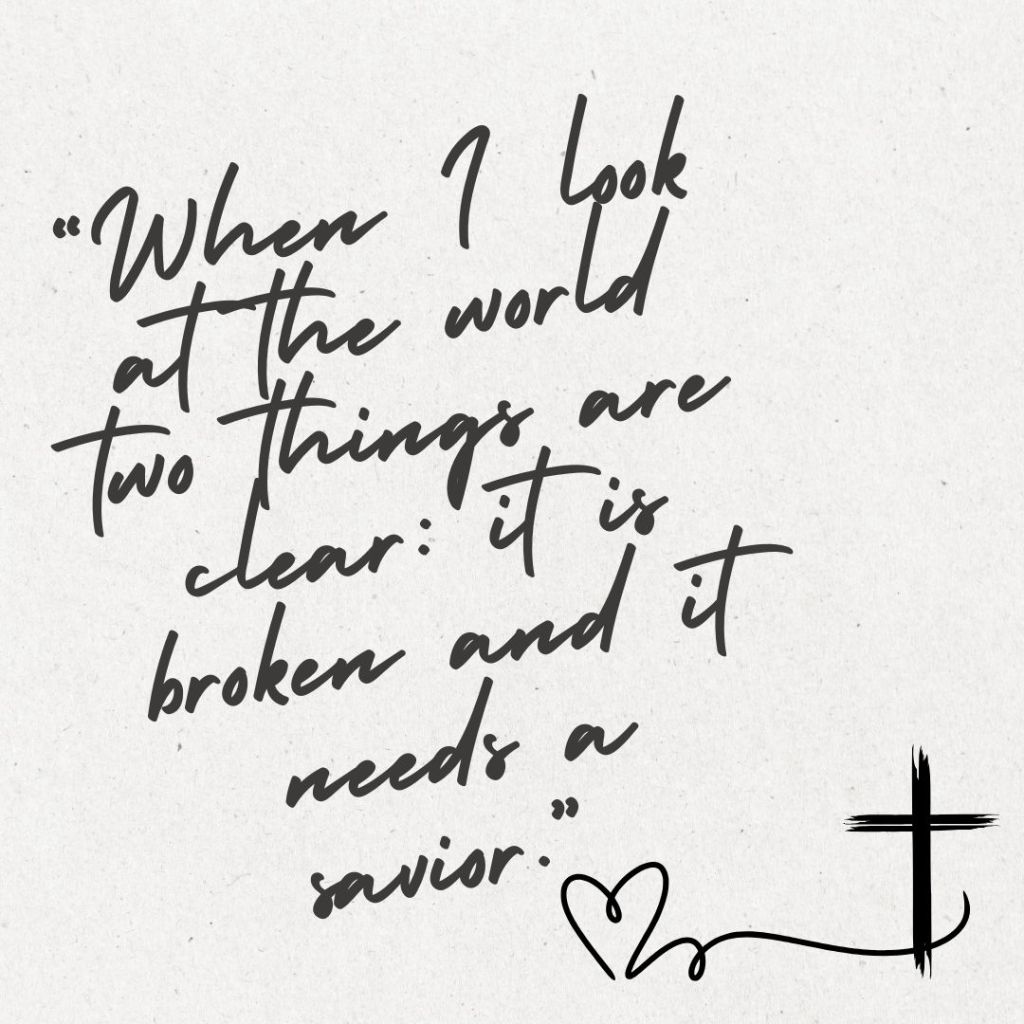 “When I look
at the world
two things are
clear: it is
broken and it
needs a
savior.”